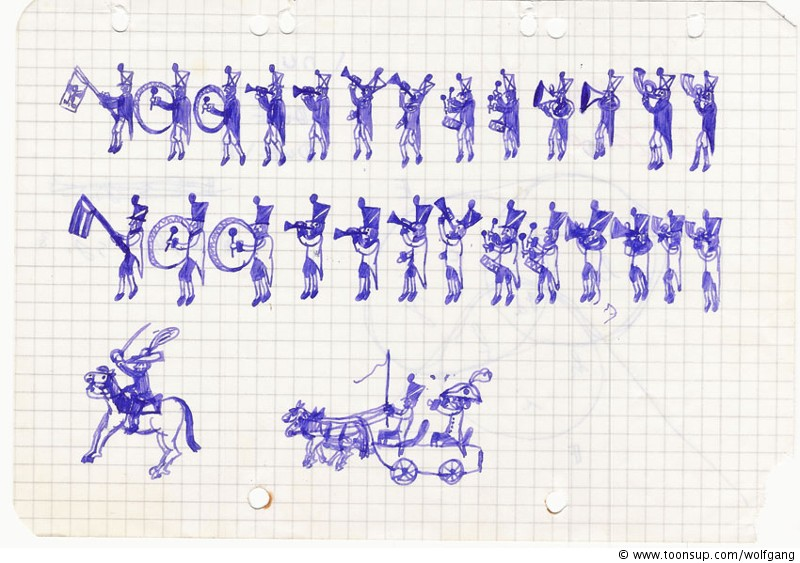 © www.toonsup.com/wolfgang